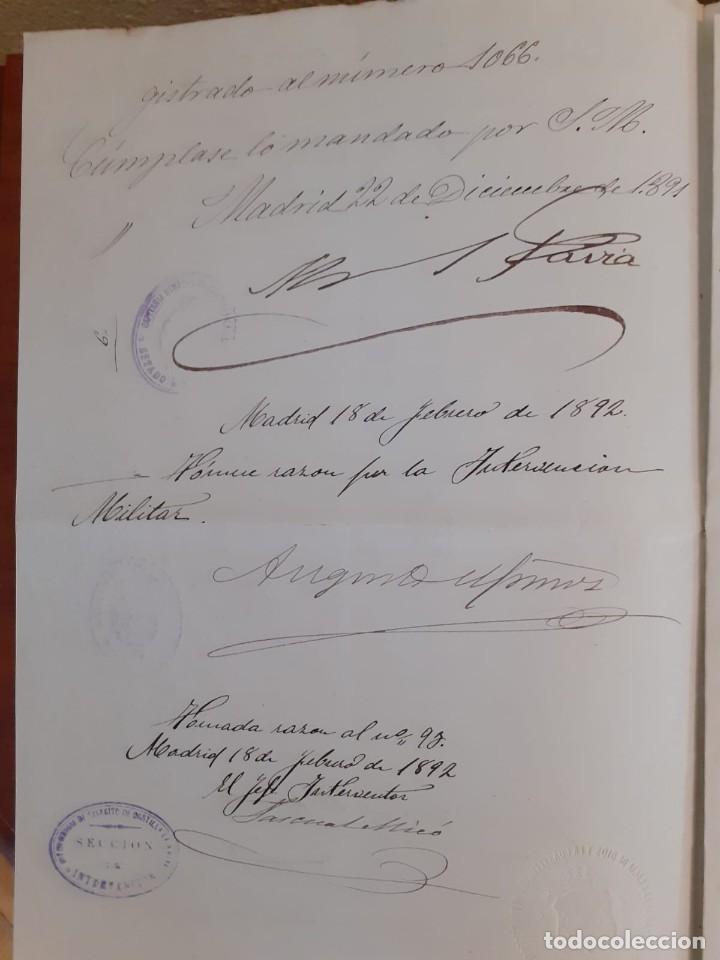 gistrado al número 1066.
Cúmplase lo mandado por S. M.
Madrid 22 de Diciembre de 1891
Pavia
6.
Madrid 18 de febrero de 1892.
Tómese razon por la Intervencion
Militar.
Tomada razon al nº 97.
Madrid 18 de febrero de 1892
El Jefe Interventor
Pascual Micó
SECCION
DE
INTERVENCION
todocoleccion
todocoleccion.net